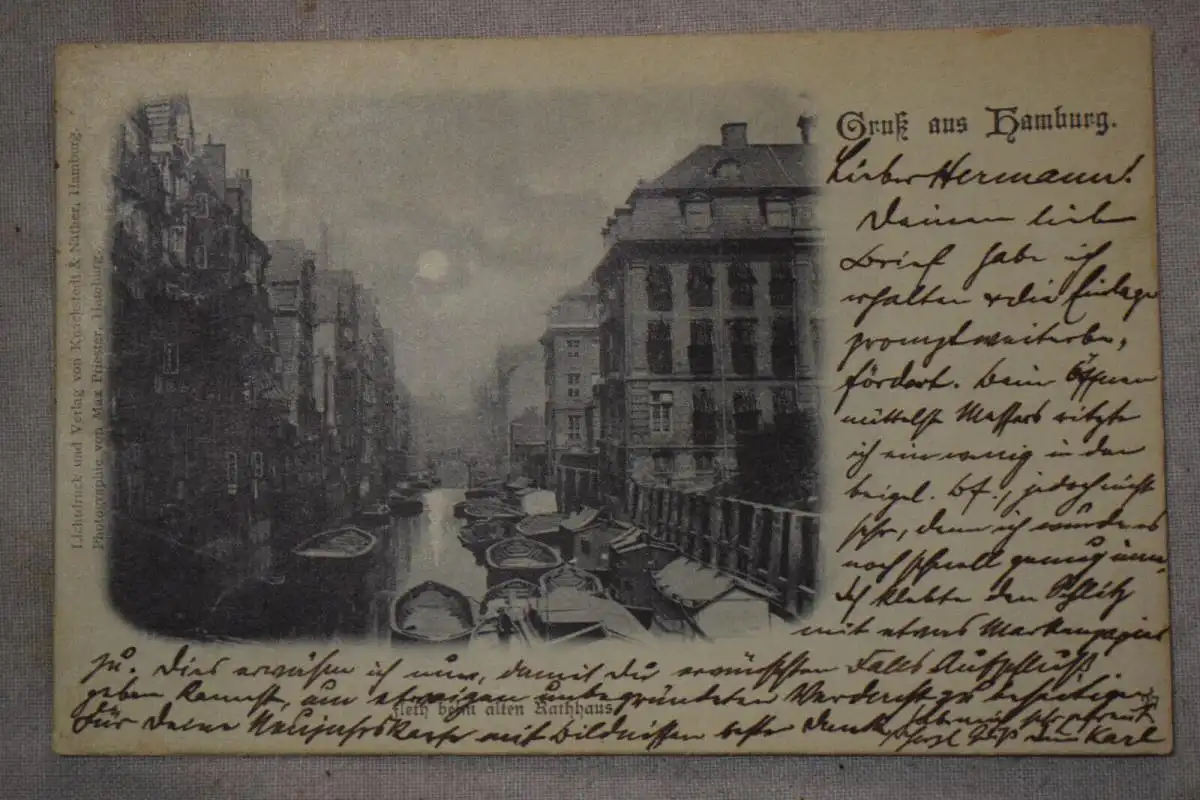 Gruß aus Hamburg.
Lieber Hermann!
Deinen lieben
Brief habe ich
erhalten & die Einlage
prompt weiterbe-
fördert. Beim Öffnen
mittelst Messers ritzte
ich ein wenig in den
beigel. Bf., jedoch nicht
sehr, denn ich wurde es
noch schnell genug inne.
Ich klebte den Schlitz
mit etwas Markenpapier
zu. Dies erwähne ich nur, damit du erwünschten Falls Aufschluß
geben kannst, um etwaigen unbegründeten Verdacht zu beseitigen.
Für Deine Neujahrskarte mit Bildnissen besten Dank, hab mich sehr gefreut
Herzl Gruß dein Karl
Fleth beim alten Rathhaus
Lichtdruck und Verlag von Knackstedt & Näther, Hamburg.
Photographie von Max Priester, Hamburg.